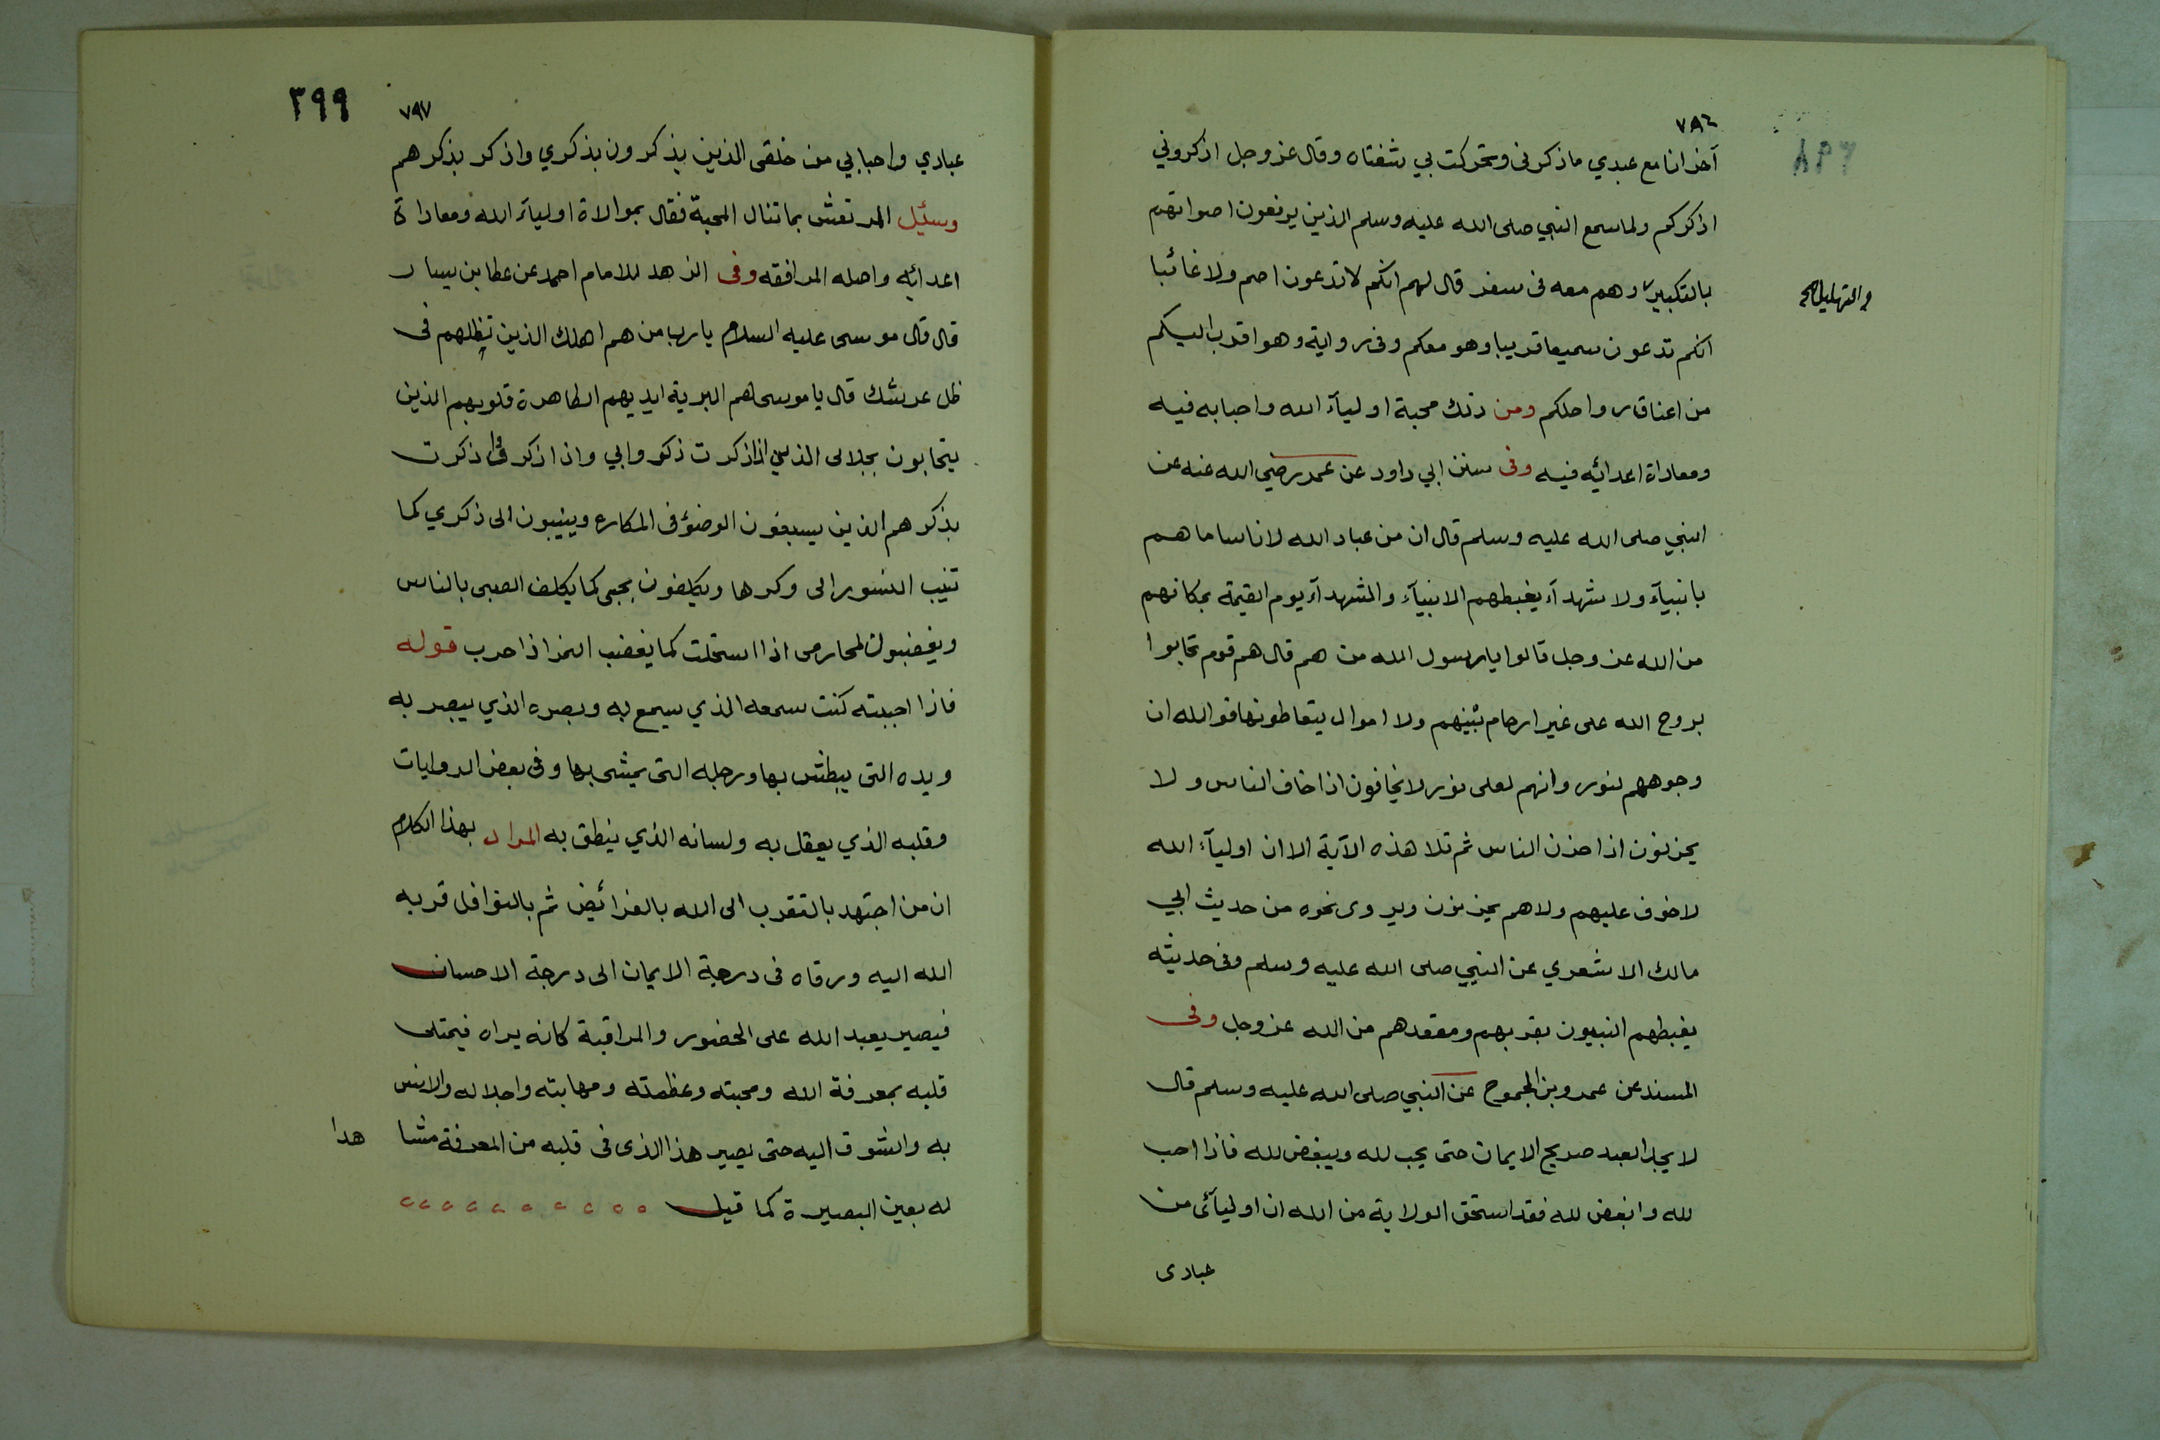 ٧٩٦
آخر انا مع عبدي ما ذكرنى وتحركت بي شفتاه وقال عز وجل اذكروني
اذكركم ولما سمع النبي صلى الله عليه وسلم الذين يرفعون اصواتهم
بالتكبير وهم معه فى سفر قال لهم انكم لا تدعون اصم ولا غائبا
والتهليل صح
انكم تدعون سميعا قريبا وهو معكم وفى رواية وهو اقرب اليكم
من اعناق رواحلكم ومن ذلك محبة اوليآء الله واحبابه فيه
ومعاداة اعدائه فيه وفى سنن ابي داود عن عمر رضي الله عنه عن
النبي صلى الله عليه وسلم قال ان من عباد الله لاناسا ما هم
بانبيآء ولا شهدآء يغبطهم الانبيآء والشهدآء يوم القيمة بمكانهم
من الله عز وجل قالوا يا رسول الله من هم قال هم قوم تحابوا
بروح الله على غير ارحام بينهم ولا اموال يتعاطونها فوالله ان
وجوههم لنور وانهم لعلى نور لا يخافون اذا خاف الناس ولا
يحزنون اذا حزن الناس ثم تلا هذه الآية الا ان اوليآء الله
لا خوف عليهم ولا هم يحزنون ويروى نحوه من حديث ابي
مالك الاشعري عن النبي صلى الله عليه وسلم وفى حديثه
يغبطهم النبيون بقربهم ومقعدهم من الله عز وجل وفى
المسند عن عمرو بن الجموح عن النبي صلى الله عليه وسلم قال
لا يجد العبد صريح الايمان حتى يحب لله ويبغض لله فاذا احب
لله وابغض لله فقد استحق الولاية من الله ان اوليآئى من
عبادى
٣٩٩
٧٩٧
عبادي واحبابي من خلقى الذين يذكرون بذكري واذكر بذكرهم
وسئيل المرتعش بما تنال المحبة فقال بموالاة اوليآء الله ومعاداة
اعدائه واصله الموافقه وفى الزهد للامام احمد عن عطا بن يسار
قال قال موسى عليه السلام يا رب من هم اهلك الذين تظلهم فى
ظل عرشك قال يا موسى هم البرية ايديهم الطاهرة قلوبهم الذين
يتحابون بجلالى الذين اذا ذكرت ذكروا بي واذا ذكروا ذكرت
بذكرهم الذين يسبغون الوضوء فى المكاره وينيبون الى ذكري كما
تنيب النسور الى وكرها ويكلفون بحبى كما يكلف الصبى بالناس
ويغضبون لمحارمى اذا استحلت كما يغضب النمر اذا حرب قوله
فاذا احببته كنت سمعه الذي يسمع به وبصره الذي يبصر به
ويده التى يبطش بها ورجله التى يمشى بها وفى بعض الروايات
وقلبه الذي يعقل به ولسانه الذي ينطق به المراد بهذا الكلام
ان من اجتهد بالتقرب الى الله بالفرائض ثم بالنوافل قربه
الله اليه ورقاه فى درجة الايمان الى درجة الاحسان
فيصير يعبد الله على الحضور والمراقبة كانه يراه فيمتلى
قلبه بمعرفة الله ومحبته وعظمته ومهابته واجلاله والانس
به والشوق اليه حتى يصير هذا الذى فى قلبه من المعرفة مشا هدا
له بعين البصيرة كما قيل